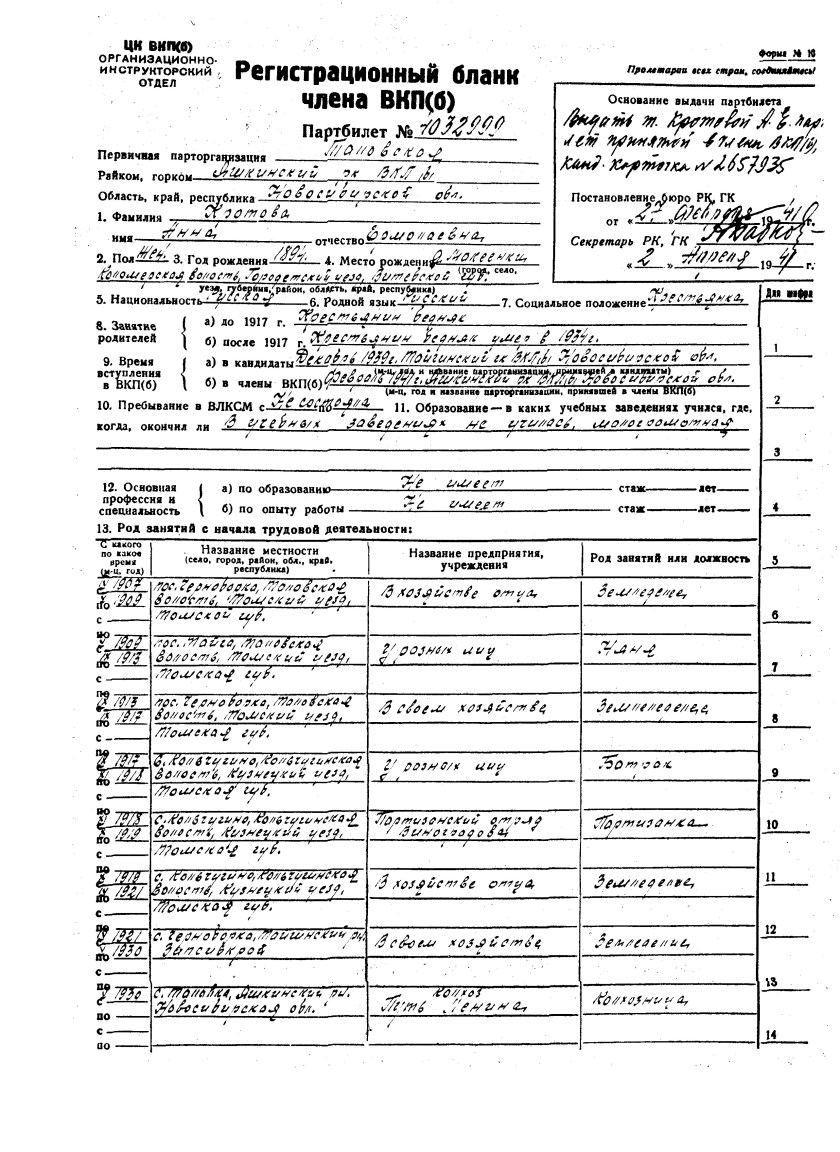 ЦК ВКП(б)
ОРГАНИЗАЦИОННО-
ИНСТРУКТОРСКИЙ
ОТДЕЛ
Форма № 10
Пролетарии всех стран, соединяйтесь!
Регистрационный бланк
члена ВКП(б)
Партбилет № 1032999
Основание выдачи партбилета
Выдать т. Кротовой А. Е. пар
лет принятой в члены ВКП/б/,
канд. карточка № 2657935
Постановление бюро РК, ГК
от «27» февраля 1941 г.
Секретарь РК, ГК
«2» Апреля 1941 г.
Первичная парторганизация Таловской
Райком, горком Яшкинский рк ВКП/б/
Область, край, республика Новосибирской обл.
1. Фамилия Кротова
имя Анна отчество Ермолаевна
2. Пол Жен. 3. Год рождения 1894. 4. Место рождения
волость, Городетский уезд, Витебской губ. (город, село,
уезд, губерния, район, область, край, республика)
5. Национальность Русская 6. Родной язык Русский 7. Социальное положение Крестьянка
Для шифра
8. Занятие
родителей
а) до 1917 г. Крестьянин бедняк
б) после 1917 г. Крестьянин бедняк умер в 1934г.
9. Время
вступления
в ВКП(б)
а) в кандидаты Декабрь 1939г. Тайгинский гк ВКП/б/ Новосибирской обл.
(м-ц, год и название парторганизации, принявшей в кандидаты)
б) в члены ВКП(б) Февраль 1941г. Яшкинский рк ВКП/б/ Новосибирской обл.
(м-ц, год и название парторганизации, принявшей в члены ВКП(б)
10. Пребывание в ВЛКСМ с Не состояла по 11. Образование — в каких учебных заведениях учился, где,
когда, окончил ли В учебных заведениях не училась, малограмотная
12. Основная
профессия и
специальность
а) по образованию Не имеет стаж лет
б) по опыту работы Не имеет стаж лет
13. Род занятий с начала трудовой деятельности:
С какого
по какое
время
(м-ц, год)
Название местности
(село, город, район, обл., край,
республика)
Название предприятия,
учреждения
Род занятий или должность
1907 пос. Черноворка, Таловская В хозяйстве отца Земледелец
по 1909 волость, Томский уезд,
с Томской губ.
1909 пос. Тайга, Таловская У разных лиц Няня
1913 волость, Томский уезд,
с Томская губ.
1913 пос. Черноворка, Таловская В своем хозяйстве Земледелец
1917 волость, Томский уезд,
с Томская губ.
1917 с. Кольчугино, Кольчугинская У разных лиц Батрак
1918 волость, Кузнецкий уезд,
с Томская губ.
1918 с. Кольчугино, Кольчугинская Партизанский отряд Партизанка
1919 волость, Кузнецкий уезд, Виноградова
с Томская губ.
1919 с. Кольчугино, Кольчугинская В хозяйстве отца Земледелие
1921 волость, Кузнецкий уезд,
с Томская губ.
1921 с. Черноворка, Тайгинский рн. В своем хозяйстве Земледелие
1930 Запсибкрай
с
1930 с. Таловка, Яшкинский рн. колхоз Колхозница
по Новосибирская обл. Путь Ленина
с
по
1
2
3
4
5
6
7
8
9
10
11
12
13
14